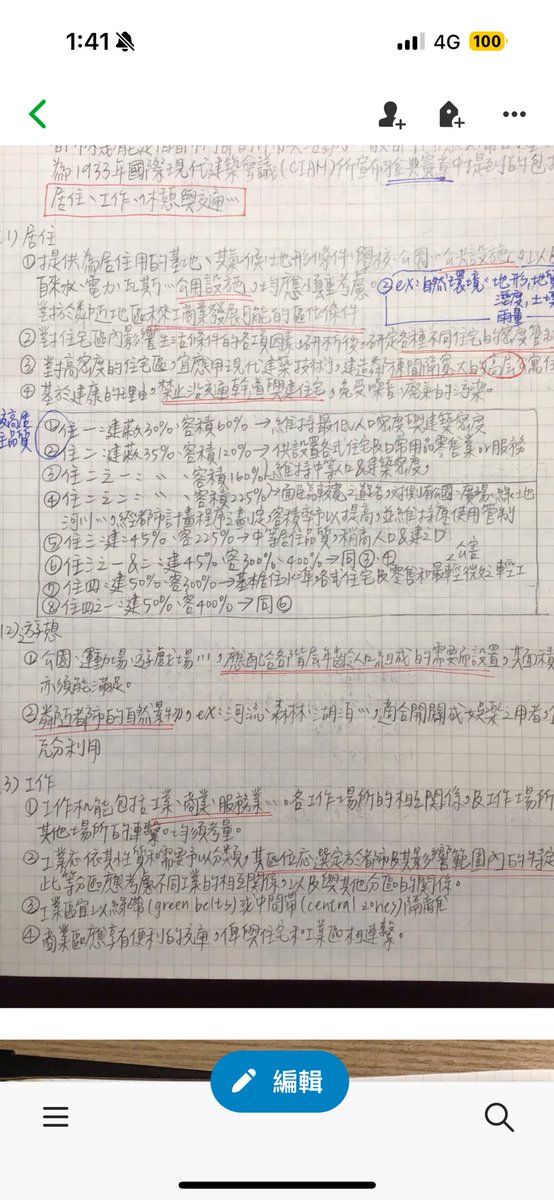 1:41
4G 100
為1933年國際現代建築會議(CIAM)所宣布雅典憲章中提到的包
居住、工作、休憩與交通…
(1) 居住
①提供為居住用的基地、其氣候、地形條件、學校、公園…公共設施
自來水、電力、瓦斯…公用設施,均應慎重考慮。 ②ex:自然環境:地形,地質
對於鄰近地區未來工商業發展可能的區位條件 溼度,土壤
雨量
②對住宅區內影響生活條件的各項因素,研析後,研定各種不同住宅的密度管制
③對高密度的住宅區,宜應用現代建築技術,建造鄰棟間隔寬大的高層
④基於健康的理由,禁止沿交通幹道興建住宅,免受噪音、廢氣的污染。
較高居
住品質
①住一:建蔽30%、容積60%→維持最低人口密度與建築密度
②住二:建蔽35%、容積120%→供設置各式住宅及日常用品零售業or服務
③住二之一:〃 〃、容積160%→維持中等人口&建築密度。
④住二之二:〃 〃、容積225%→面臨較寬之道路,對側有公園、廣場、綠地
河川…,經都市計畫程序之劃定,容積率予以提高,並維持原使用管制
⑤住三:建45%、容225%→中等居住品質,稍高人口&建D
⑥住三之一&二:建45%、容300%、400%→同③、④
⑦住四:建50%、容300%→基本居住水準各式住宅及零售和最輕微輕工
⑧住四之一:建50%、容400%→同⑥
(2) 遊憩
①公園、運動場、遊戲場…,應配合各階層年齡人口組成的需要而設置,其面積
亦須能滿足。
②鄰近都市的自然景物,ex:河流、森林、湖泊…,適合開闢成娛樂之用者,宜
充分利用
3) 工作
①工作机能包括工業、商業、服務業…。各工作場所的相互關係,及工作場所
其他場所的連繫。均須考量。
②工業应依其性質和需要予以分類,其區位应選定於都市及其影響範圍內的特定
此等分區應考慮不同工業的相互關係,以及與其他分區的關係。
③工業區宜以綠帶(green belts)或中間帶(central zones)隔離
④商業區應享有便利的交通,俾與住宅和工業區相連繫。
編輯